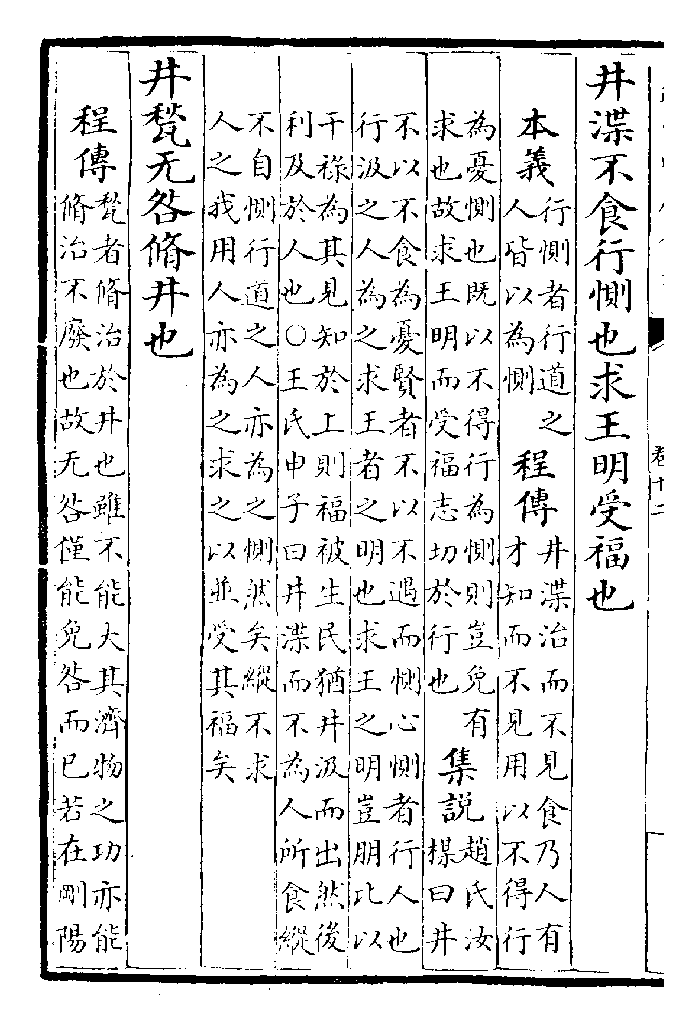 卷十二
井渫不食行惻也求王明受福也
本義
行惻者行道之
人皆以為惻
程傳
井渫治而不見食乃人有
才知而不見用以不得行
為憂惻也既以不得行為惻則豈免有
求也故求王明而受福志切於行也
集説
趙氏汝
楳曰井
不以不食為憂賢者不以不遇而惻心惻者行人也
行汲之人為之求王者之明也求王之明豈朋比以
干祿為其見知於上則福被生民猶井汲而出然後
利及於人也○王氏申子曰井渫而不為人所食縱
不自惻行道之人亦為之惻然矣縱不求
人之我用人亦為之求之以並受其福矣
井甃无咎脩井也
程傳
甃者脩治於井也雖不能大其濟物之功亦能
脩治不廢也故无咎僅能免咎而已若在剛陽